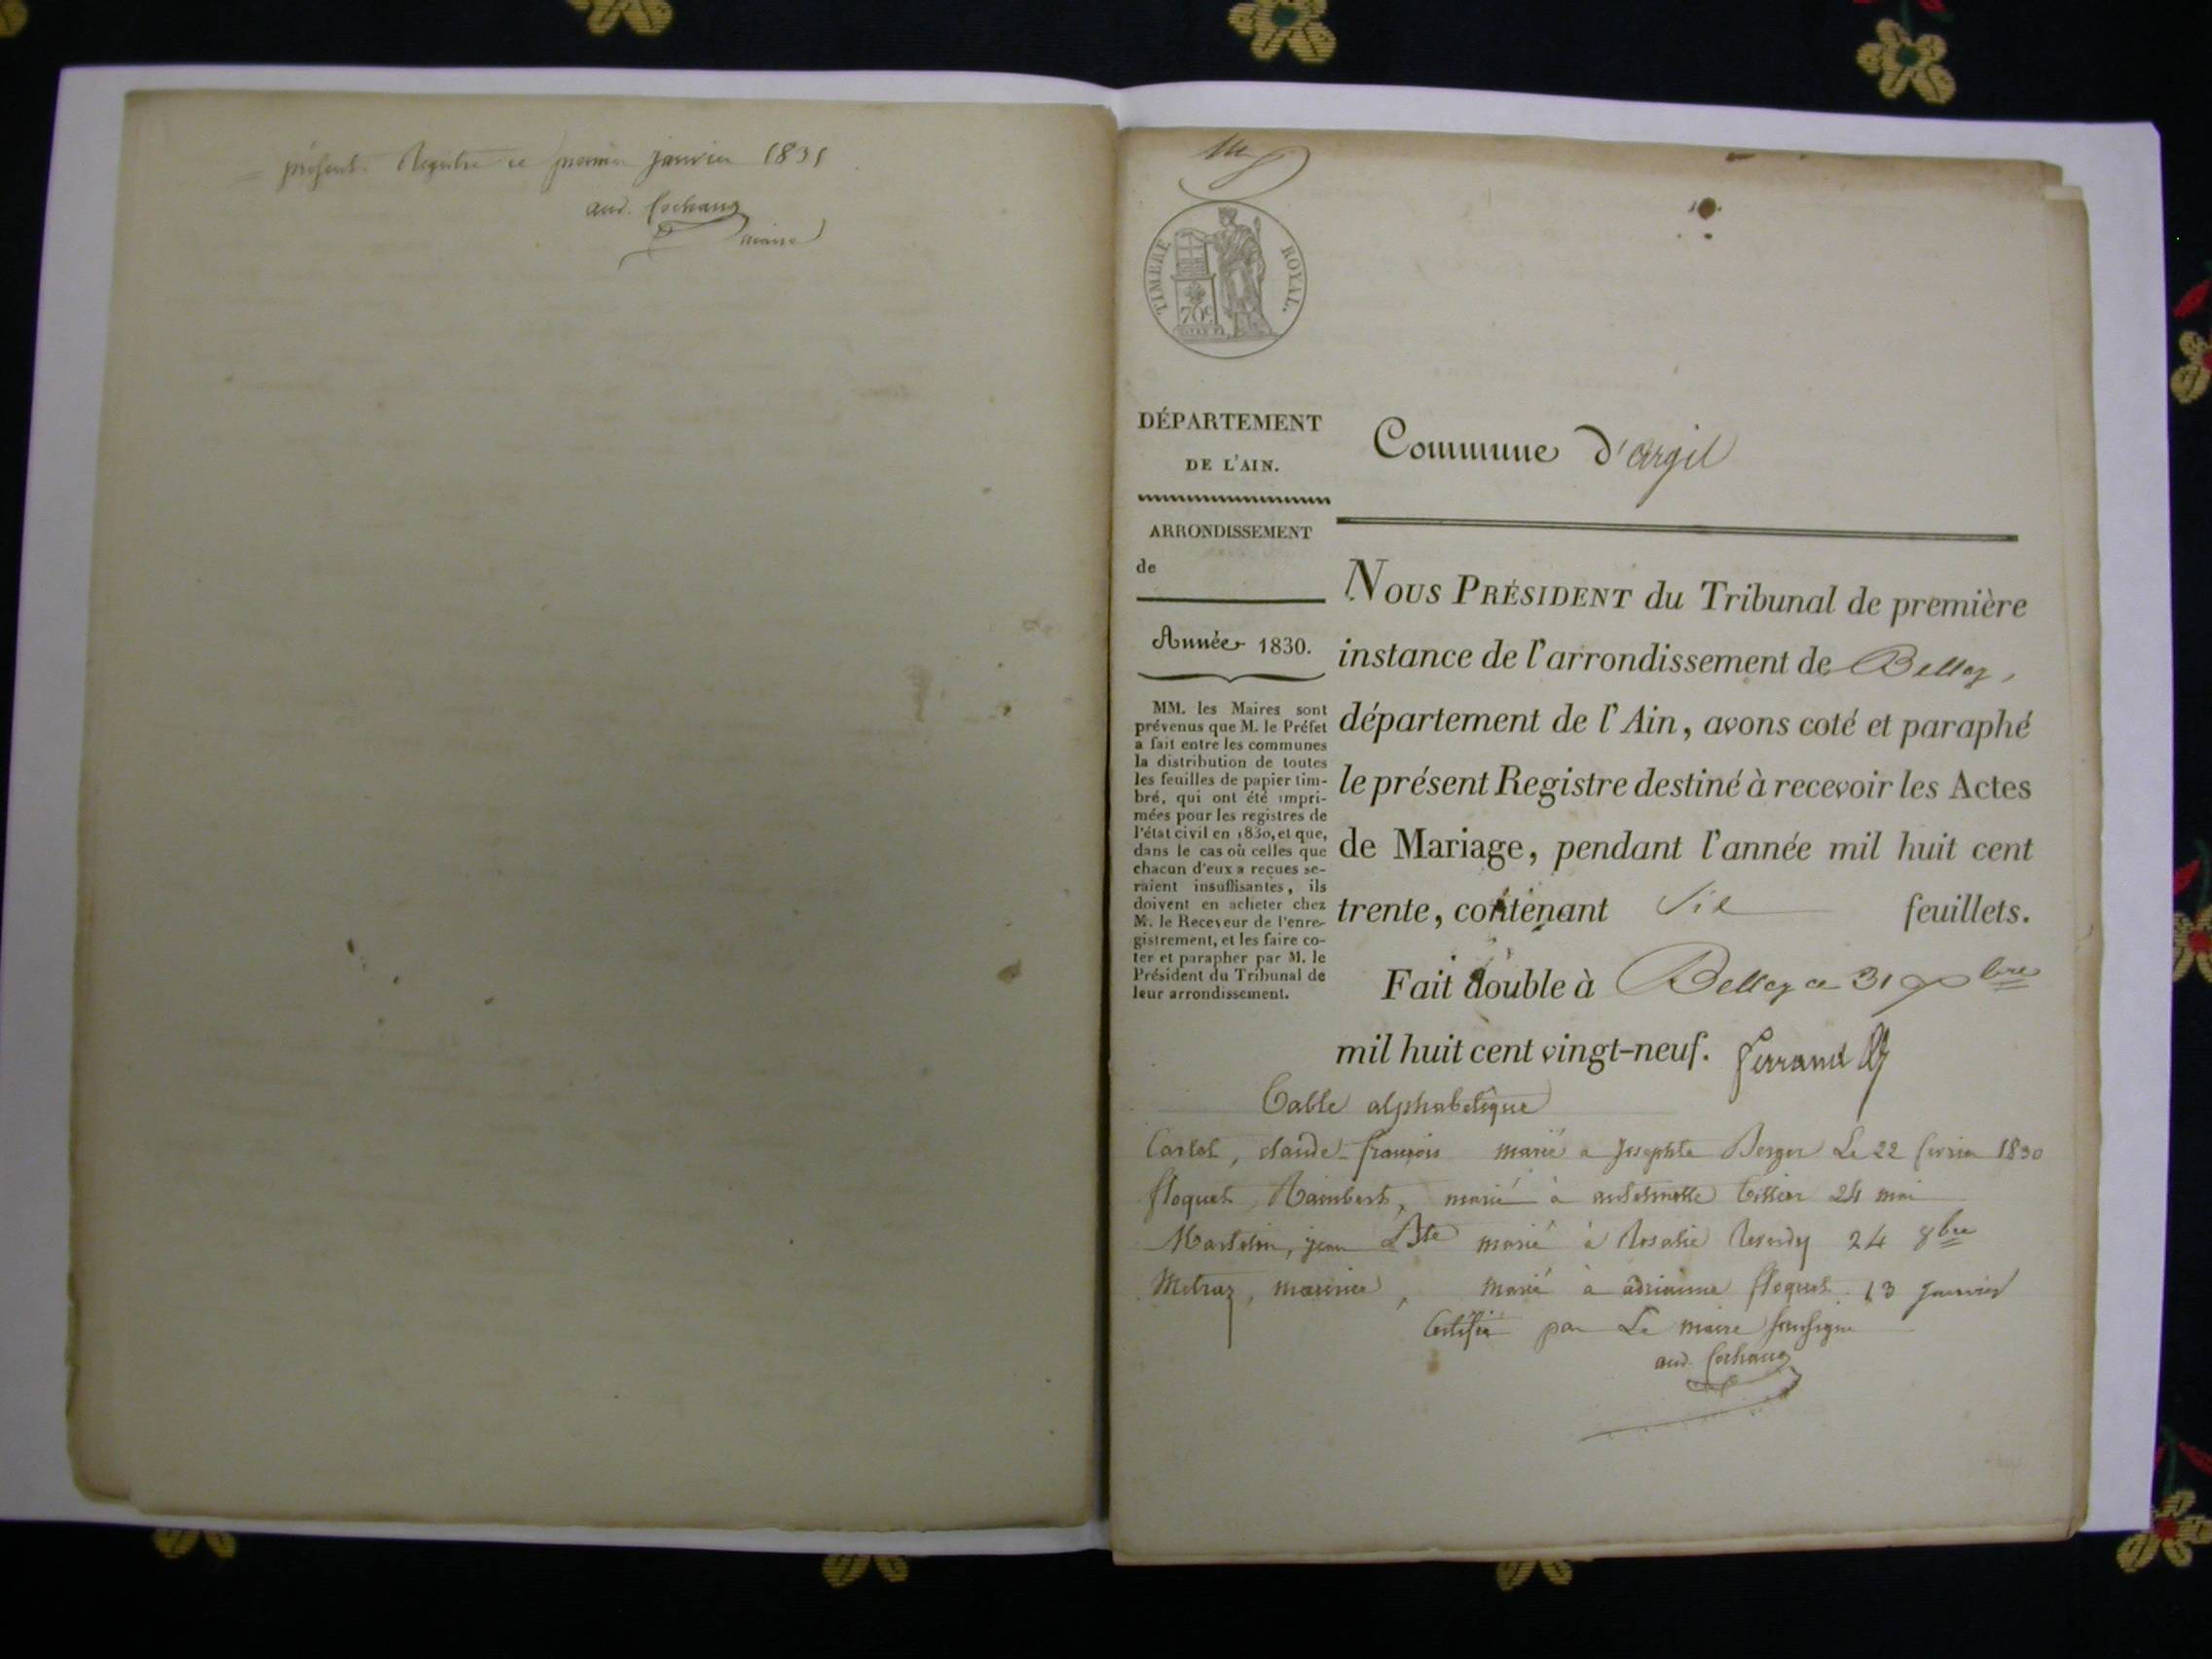 présent Registre ce premier janvier 1831
and. Cochaux
maire
TIMBRE ROYAL.
70c
DÉPARTEMENT
DE L'AIN.
ARRONDISSEMENT
de
Année 1830.
MM. les Maires sont
prévenus que M. le Préfet
a fait entre les communes
la distribution de toutes
les feuilles de papier tim-
bré, qui ont été impri-
mées pour les registres de
l'état civil en 1830, et que,
dans le cas où celles que
chacun d'eux a reçues se-
raient insuffisantes, ils
doivent en acheter chez
M. le Receveur de l'enre-
gistrement, et les faire co-
ter et parapher par M. le
Président du Tribunal de
leur arrondissement.
Commune d'argil
NOUS PRÉSIDENT du Tribunal de première
instance de l'arrondissement de Belley,
département de l'Ain, avons coté et paraphé
le présent Registre destiné à recevoir les Actes
de Mariage, pendant l'année mil huit cent
trente, contenant six feuillets.
Fait double à Belley ce 31 bre
mil huit cent vingt-neuf. Ferrand
Table alphabetique
claude-françois marié a Josephte Berger Le 22 fevrier 1830
floquet Rambert, marié à antoinette tissier 24 mai
Martelin, jean Bte marié à Rosalie Reverdy 24 8bre
Metraz, marié à adrianne floquet 13 Janvier
Certifié par Le maire soussigné
and. Cochaux